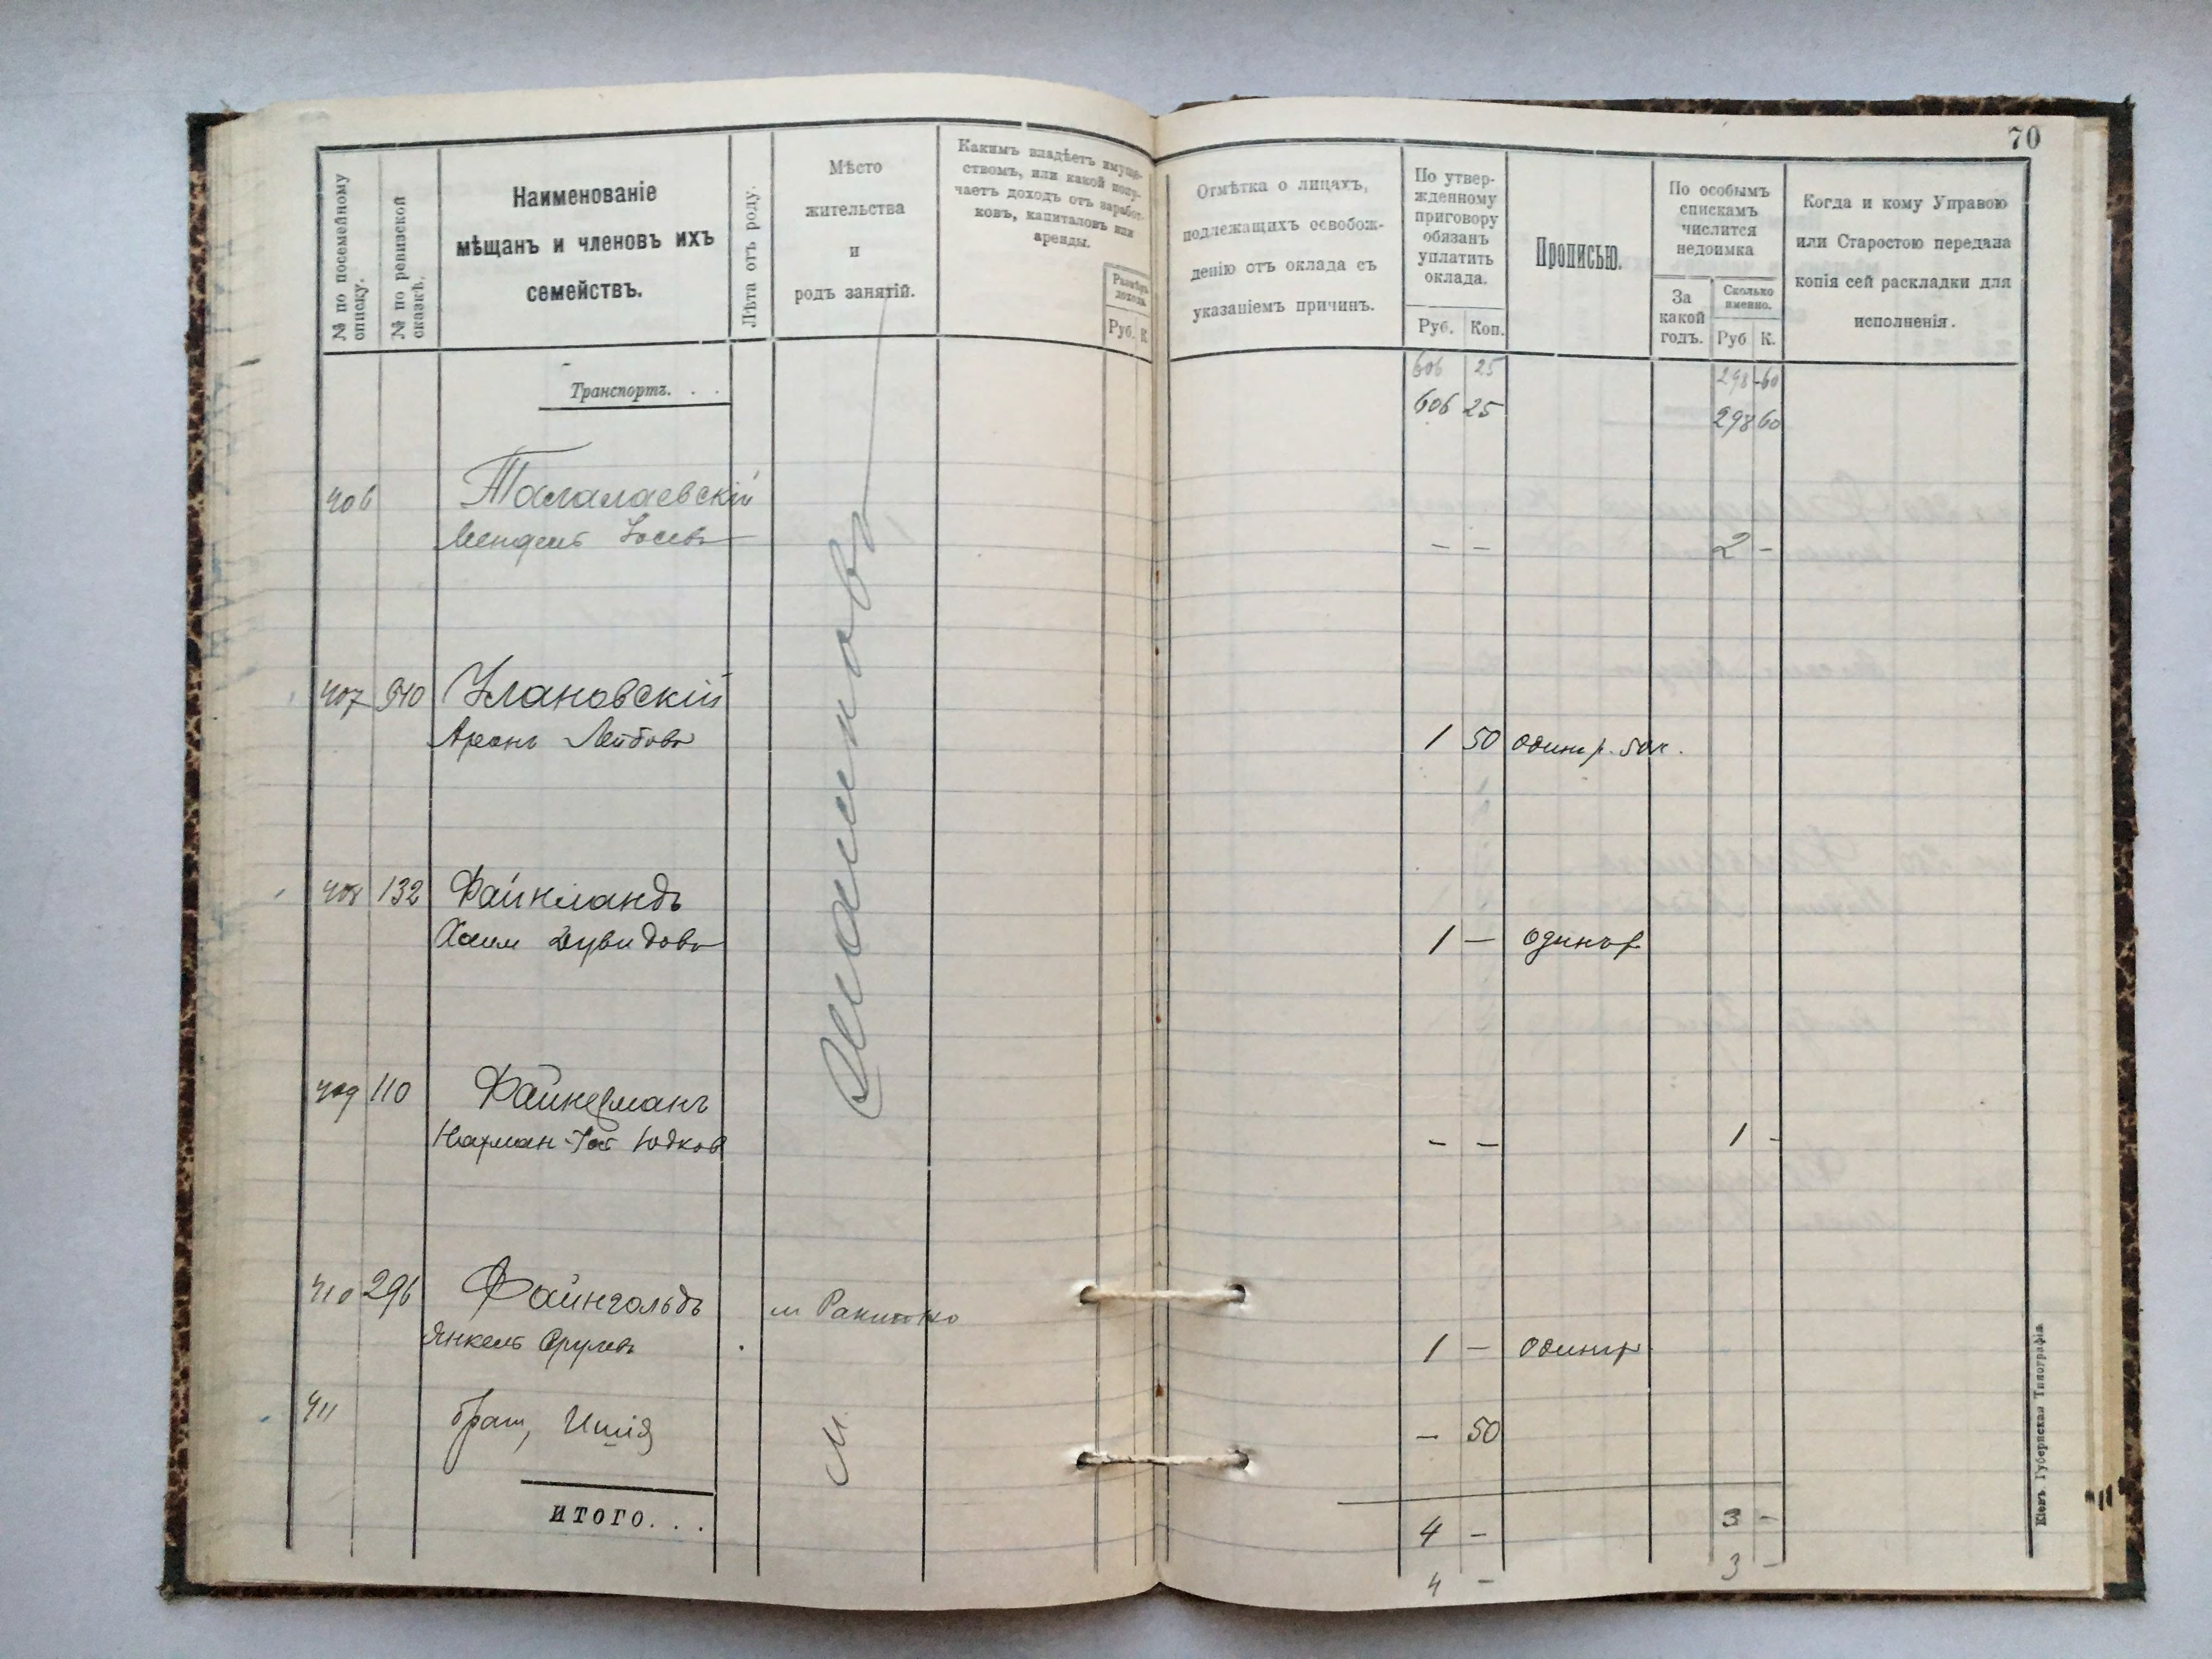 70
№ по посемейному списку.
№ по ревизской сказкѣ.
Наименованіе
мѣщанъ и членовъ ихъ
семействъ.
Лѣта отъ роду.
Мѣсто
жительства
и
родъ занятій.
Какимъ владѣетъ имуще-
ствомъ, или какой полу-
чаетъ доходъ отъ заработ-
ковъ, капиталовъ или
аренды.
Размѣръ дохода.
Руб. К.
Отмѣтка о лицахъ,
подлежащихъ освобож-
денію отъ оклада съ
указаніемъ причинъ.
По утвер-
жденному
приговору
обязанъ
уплатить
оклада.
Руб. Коп.
Прописью.
По особымъ
спискамъ
числится
недоимка
За
какой
годъ.
Сколько
именно.
Руб К.
Когда и кому Управою
или Старостою передана
копія сей раскладки для
исполненія.
606 25 298 60
Транспортъ. . .
606 25 298 60
406 Талалаевскій
Мендель Іосевъ - - 2 -
407 940 Улановскій
Аронъ Лейбовъ 1 50 один р. 50 к.
408 132 Файнландъ
Хаим Дувидовъ 1 - одинъ р
409 110 Файнерманъ
Нахман- Юдков - - 1 -
410 296 Файнгольдъ м Ракитно
Янкель Срулевъ 1 - один р
411 брат, Ишія - 50
М
ИТОГО. . . 4 - 3 -
4 - 3 -
Кіевъ. Губернская Типографія.